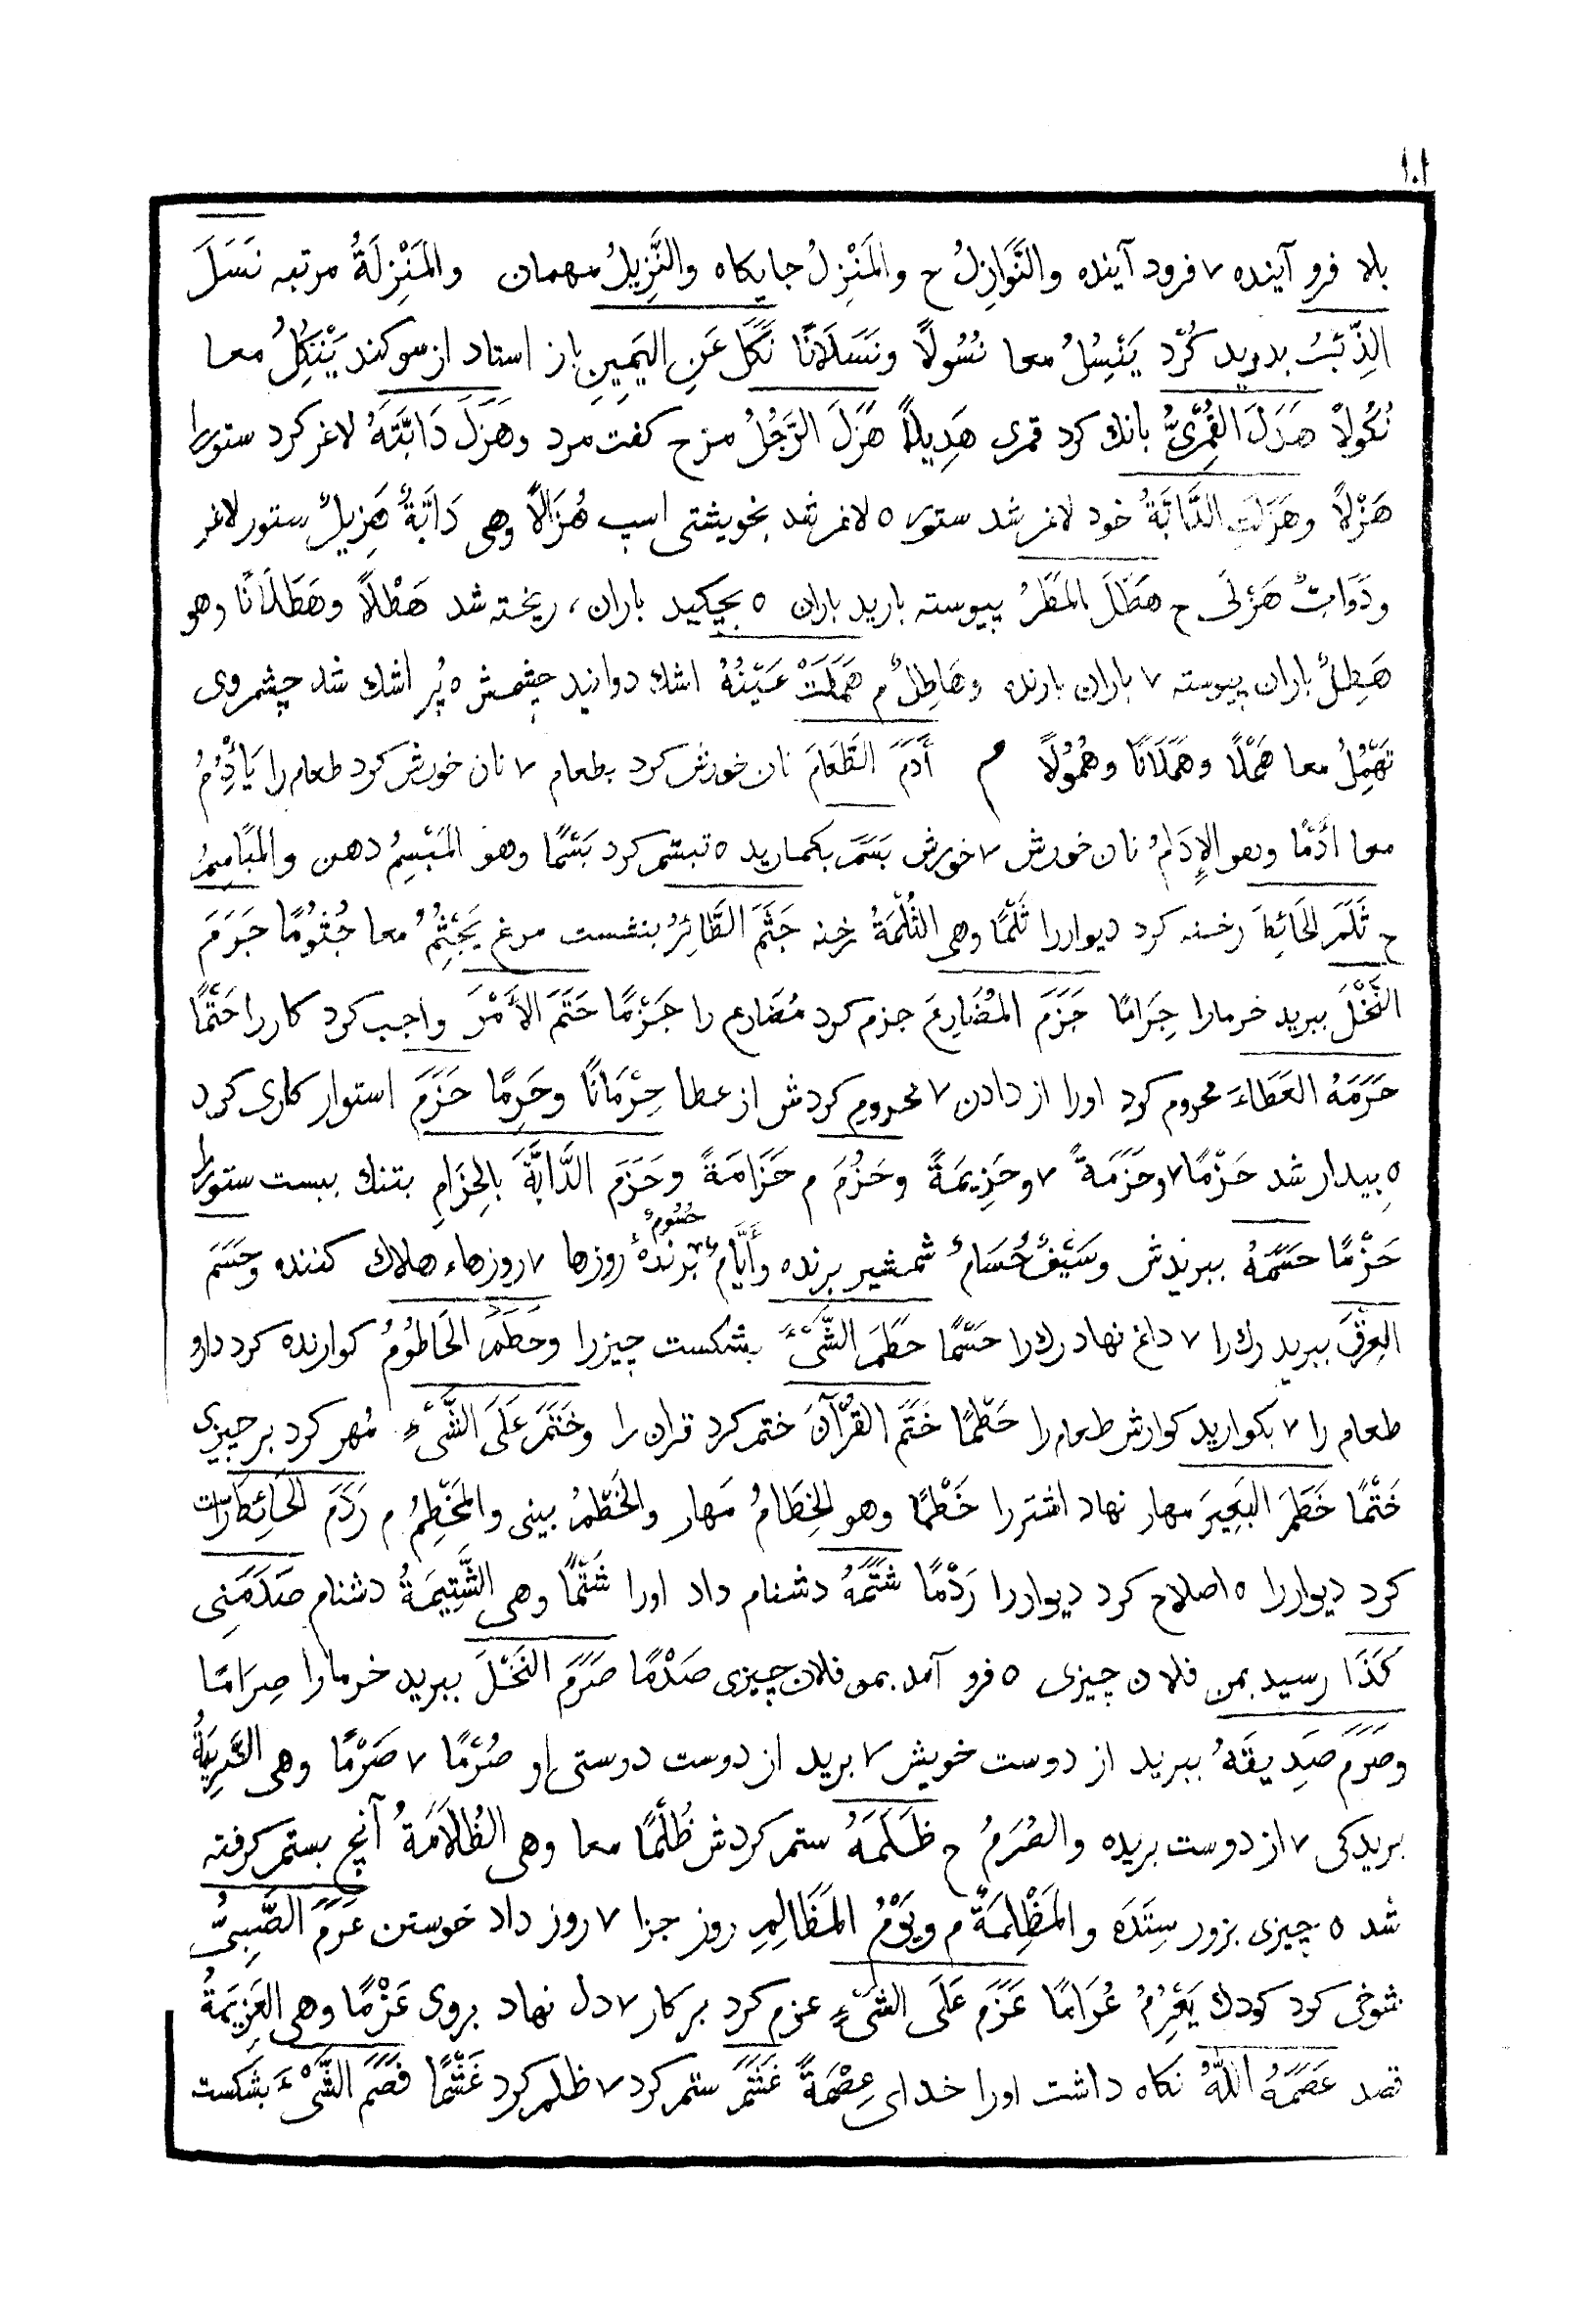 ١٠١
بلا فرو آینده ٧ فرود آینده والنَّوَازِلُ ح والمَنْزِلُ جایکاه والنَّزِیلُ مهمان والمَنْزِلَةُ مرتبه نَسَلَ
الذِّئْبُ بدوید کُرْد یَنْسِلُ معا نُسُولًا ونَسَلَانًا نَکَلَ عَنِ الیَمِینِ باز استاد از سوکند یَنْکِلُ معا
نُکُولًا هَدَلَ القُمْرِیُّ بانك کرد قمری هَدِیلًا هَزَلَ الرَّجُلُ مزح کفت مرد وهَزَلَ دَابَّتَهُ لاغر کرد ستوررا
هَزْلًا وهَزَلَتِ الدَّابَّةُ خود لاغر شد ستور ٥ لاغر شد بخویشتی اسب هُزَالًا وهی دَابَّةٌ هَزِیلٌ ستور لاغر
ودَوَابٌّ هَزْلَی ح هَطَلَ المَطَرُ پیوسته بارید باران ٥ بچکید باران، ریخته شد هَطْلًا وهَطَلَانًا وهو
هَطِلٌ باران پیوسته ٧ باران بارنده وهَاطِلٌ م هَمَلَتْ عَیْنُهُ اشك دوانید چشمش ٥ پُر اشك شد چشم وی
تَهْمِلُ معا هَمْلًا وهَمَلَانًا وهُمُولًا م أَدَمَ الطَّعَامَ نان خورش کرد بطعام ٧ نان خورش کرد طعام را یَأْدِمُ
معا أَدْمًا وهو الإِدَامُ نان خورش ٧ خورش بَسَمَ بکمارید ٥ تبسّم کرد بَسْمًا وهو المَبْسِمُ دهن والمَبَاسِمُ
ح ثَلَمَ الحَائِطَ رخنه کرد دیواررا ثَلْمًا وهی الثُّلْمَةُ رخنه جَثَمَ الطَّائِرُ بنشست مرغ یَجْثِمُ معا جُثُومًا جَرَمَ
النَّخْلَ ببرید خرمارا جِرَامًا جَزَمَ المُضَارِعَ جزم کرد مُضَارِع را جَزْمًا حَتَمَ الأَمْرَ واجب کرد کاررا حَتْمًا
حَرَمَهُ العَطَاءَ محروم کرد اورا از دادن ٧ محروم کردش از عطا حِرْمَانًا وحَرِمًا حَزَمَ استوار کاری کرد
٥ بیدار شد حَزْمًا ٧ وحَزَمَةً ٧ وحَزِیمَةً وحَزُمَ م حَزَامَةً وحَزَمَ الدَّابَّةَ بالحِزَامِ بتنك ببست ستوررا
حَزْمًا حَسَمَهُ ببریدش وسَیْفٌ حُسَامٌ شمشیر برنده وأَیَّامٌ حُسُومٌ برنده روزها ٧ روزهاء هلاك کننده وحَسَمَ
العِرْقَ ببرید رك را ٧ داغ نهاد رك را حَسْمًا حَطَمَ الشَّیْءَ بشکست چیزرا وحَطَمَ الحَاطُومُ کوارنده کرد دارو
طعام را ٧ بکوارید کوارش طعام را حَطْمًا خَتَمَ القُرْآنَ ختم کرد قران را وخَتَمَ عَلَی الشَّیْءِ مُهر کرد بر چیزی
خَتْمًا خَطَمَ البَعِیرَ مهار نهاد اشتررا خَطْمًا وهو الخِطَامُ مَهار والخَطْمُ بینی والمَخْطِمُ م رَدَمَ الحَائِطَ راست
کرد دیواررا ٥ اصلاح کرد دیواررا رَدْمًا شَتَمَهُ دشنام داد اورا شَتْمًا وهی الشَّتِیمَةُ دشنام صَدَمَنِی
کَذَا رسید بمن فلان چیزی ٥ فرو آمد بمن فلان چیزی صَدْمًا صَرَمَ النَّخْلَ ببرید خرمارا صِرَامًا
وصَرَمَ صَدِیقَهُ ببرید از دوست خویش ٧ برید از دوست دوستی او صُرْمًا ٧ صَرْمًا وهی الصَّرِیمَةُ
بریدکی ٧ از دوست بریده والصُّرَمُ ح ظَلَمَهُ ستم کردش ظُلْمًا معا وهی الظُّلَامَةُ آنچ بستم کرفته
شد ٥ چیزی بزور سِتَدَه والمَظْلِمَةُ م ویَوْمُ المَظَالِمِ روز جزا ٧ روز داد خوستن عَرَمَ الصَّبِیُّ
شوخی کرد کودك یَعْرِمُ عُرَامًا عَزَمَ عَلَی الشَّیْءِ عزم کرد بر کار ٧ دل نهاد بروی عَزْمًا وهی العَزِیمَةُ
قصد عَصَمَهُ اللّٰهُ نکاه داشت اورا خدای عِصْمَةً غَشَمَ ستم کرد ٧ ظلم کرد غَشْمًا فَصَمَ الشَّیْءَ بشکست